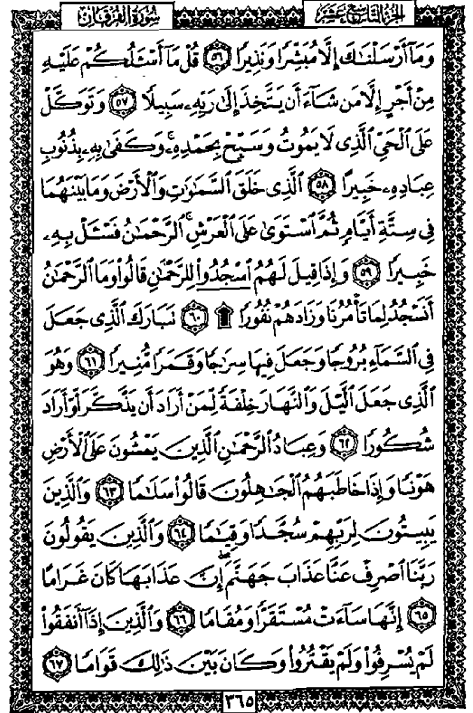 الجزء التاسع عشر
سورة الفرقان
وَمَآ أَرْسَلْنَٰكَ إِلَّا مُبَشِّرًا وَنَذِيرًا ٥٦ قُلْ مَآ أَسْـَٔلُكُمْ عَلَيْهِ
مِنْ أَجْرٍ إِلَّا مَن شَآءَ أَن يَتَّخِذَ إِلَىٰ رَبِّهِۦ سَبِيلًا ٥٧ وَتَوَكَّلْ
عَلَى ٱلْحَىِّ ٱلَّذِى لَا يَمُوتُ وَسَبِّحْ بِحَمْدِهِۦ ۚ وَكَفَىٰ بِهِۦ بِذُنُوبِ
عِبَادِهِۦ خَبِيرًا ٥٨ ٱلَّذِى خَلَقَ ٱلسَّمَٰوَٰتِ وَٱلْأَرْضَ وَمَا بَيْنَهُمَا
فِى سِتَّةِ أَيَّامٍ ثُمَّ ٱسْتَوَىٰ عَلَى ٱلْعَرْشِ ۚ ٱلرَّحْمَٰنُ فَسْـَٔلْ بِهِۦ
خَبِيرًا ٥٩ وَإِذَا قِيلَ لَهُمُ ٱسْجُدُوا۟ لِلرَّحْمَٰنِ قَالُوا۟ وَمَا ٱلرَّحْمَٰنُ
أَنَسْجُدُ لِمَا تَأْمُرُنَا وَزَادَهُمْ نُفُورًا ۩ ٦٠ تَبَارَكَ ٱلَّذِى جَعَلَ
فِى ٱلسَّمَآءِ بُرُوجًا وَجَعَلَ فِيهَا سِرَٰجًا وَقَمَرًا مُّنِيرًا ٦١ وَهُوَ
ٱلَّذِى جَعَلَ ٱلَّيْلَ وَٱلنَّهَارَ خِلْفَةً لِّمَنْ أَرَادَ أَن يَذَّكَّرَ أَوْ أَرَادَ
شُكُورًا ٦٢ وَعِبَادُ ٱلرَّحْمَٰنِ ٱلَّذِينَ يَمْشُونَ عَلَى ٱلْأَرْضِ
هَوْنًا وَإِذَا خَاطَبَهُمُ ٱلْجَٰهِلُونَ قَالُوا۟ سَلَٰمًا ٦٣ وَٱلَّذِينَ
يَبِيتُونَ لِرَبِّهِمْ سُجَّدًا وَقِيَٰمًا ٦٤ وَٱلَّذِينَ يَقُولُونَ
رَبَّنَا ٱصْرِفْ عَنَّا عَذَابَ جَهَنَّمَ ۖ إِنَّ عَذَابَهَا كَانَ غَرَامًا
٦٥ إِنَّهَا سَآءَتْ مُسْتَقَرًّا وَمُقَامًا ٦٦ وَٱلَّذِينَ إِذَآ أَنفَقُوا۟
لَمْ يُسْرِفُوا۟ وَلَمْ يَقْتُرُوا۟ وَكَانَ بَيْنَ ذَٰلِكَ قَوَامًا ٦٧
٣٦٥